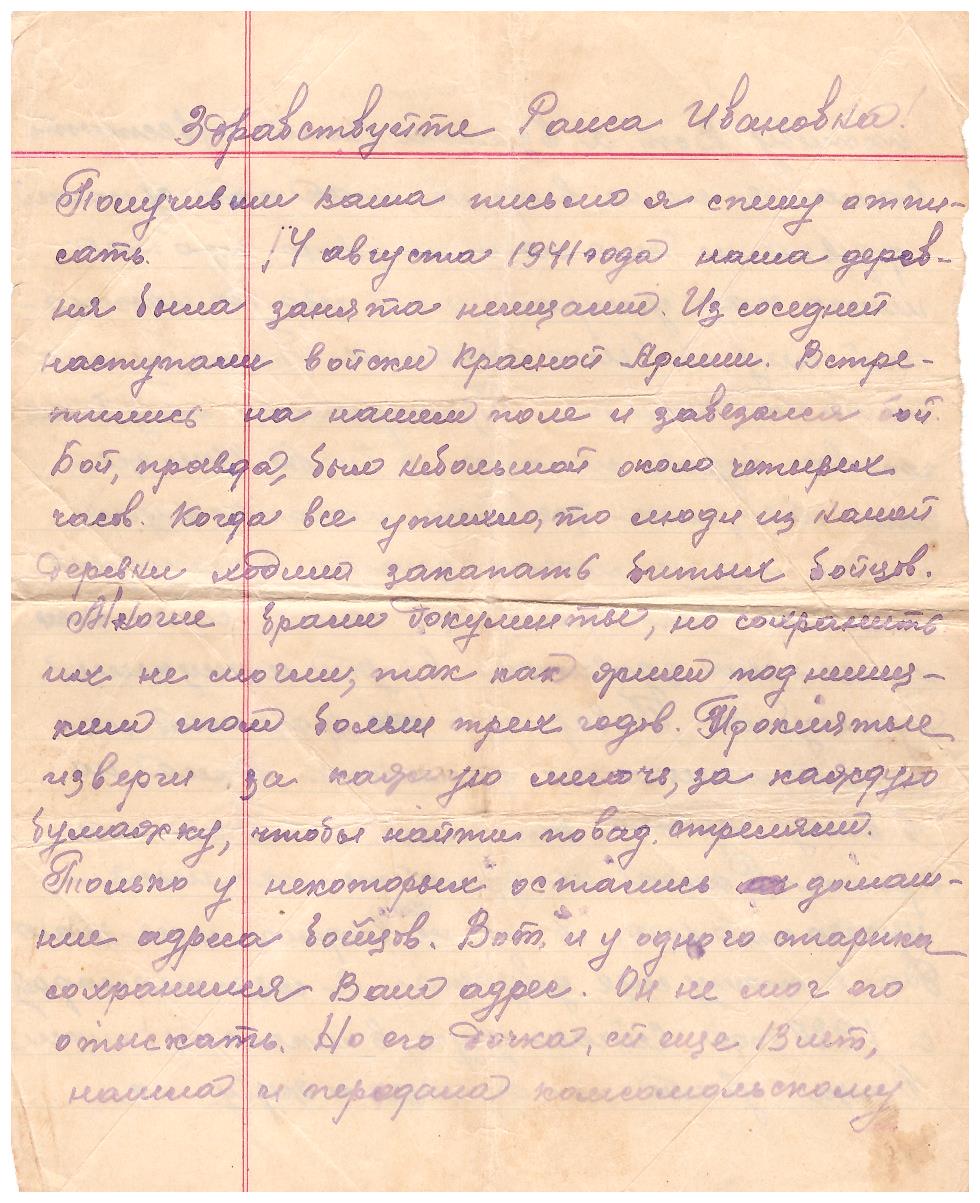 Здравствуйте Раиса Ивановна!
Получивши ваша письмо я спешу отпи-
сать. 14 августа 1941 года наша дерев-
ня была занята немцами. Из соседней
наступали войски Красной Армии. Встре-
тились на нашем поле и завезался бой.
Бой, правда, было небольшой около четырех
часов. Когда все утихло, то люди из нашей
деревни ходили закапать битых бойцов.
Многие брали документы, но сохранить
их не могли, так как жили под немец-
ким игом больши трех годов. Проклятые
изверги за каждую мелочь, за каждую
бумажку, чтобы найти повад. стреляли.
Только у некоторых остались домаш-
ние адреса бойцов. Вот и у одного старика
сохранился Ваш адрес. Он не мог его
отыскать. Но его дочка, ей еще 13 лет,
нашла и передала комсомольскому